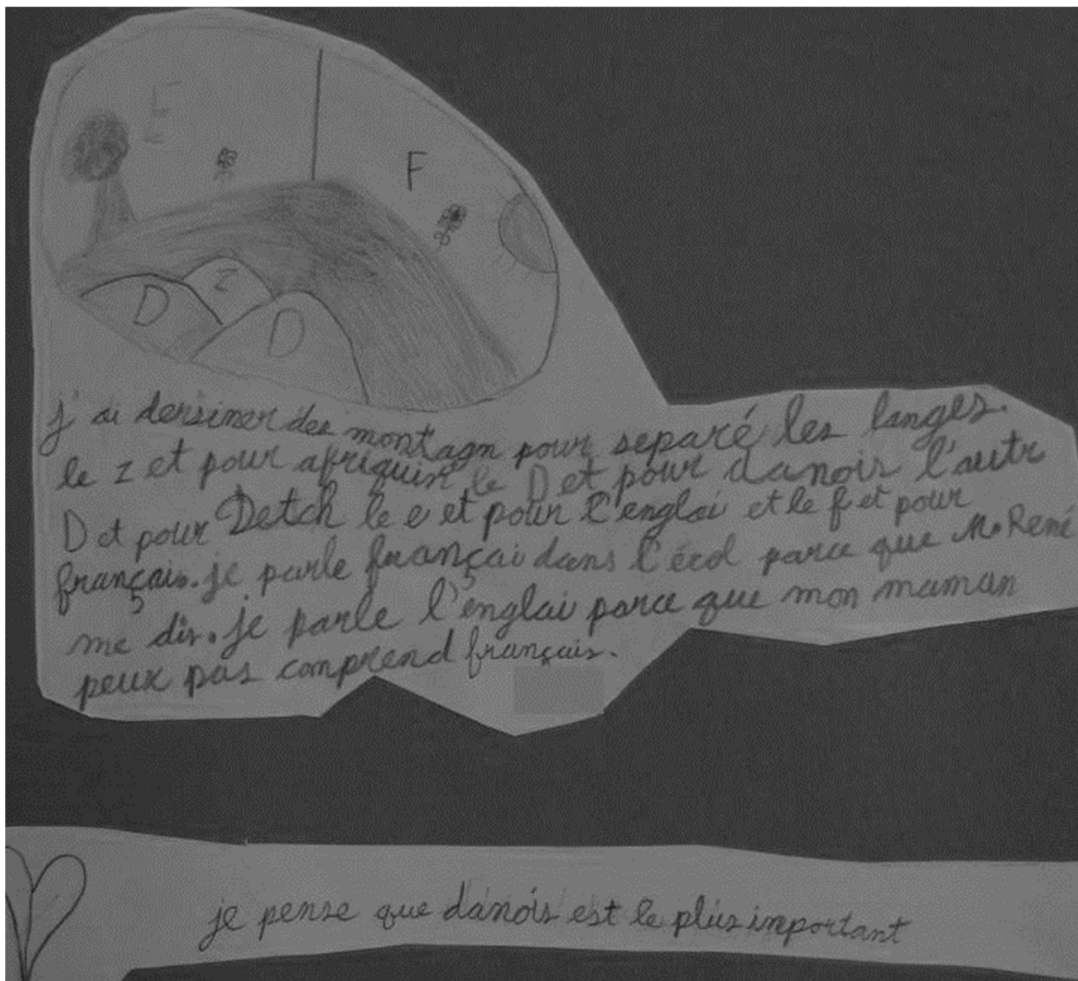 E
F
D
Z
D
j'ai dersiner des montagn pour separé les langes.
le z et pour afriquin le D et pour danoir l'autr
D et pour Detch le e et pour l'englai et le f et pour
français. je parle françai dans l'écol parce que M. René
me dis. je parle l'englai parce que mon maman
peux pas comprend français.
je pense que danois est le plus important